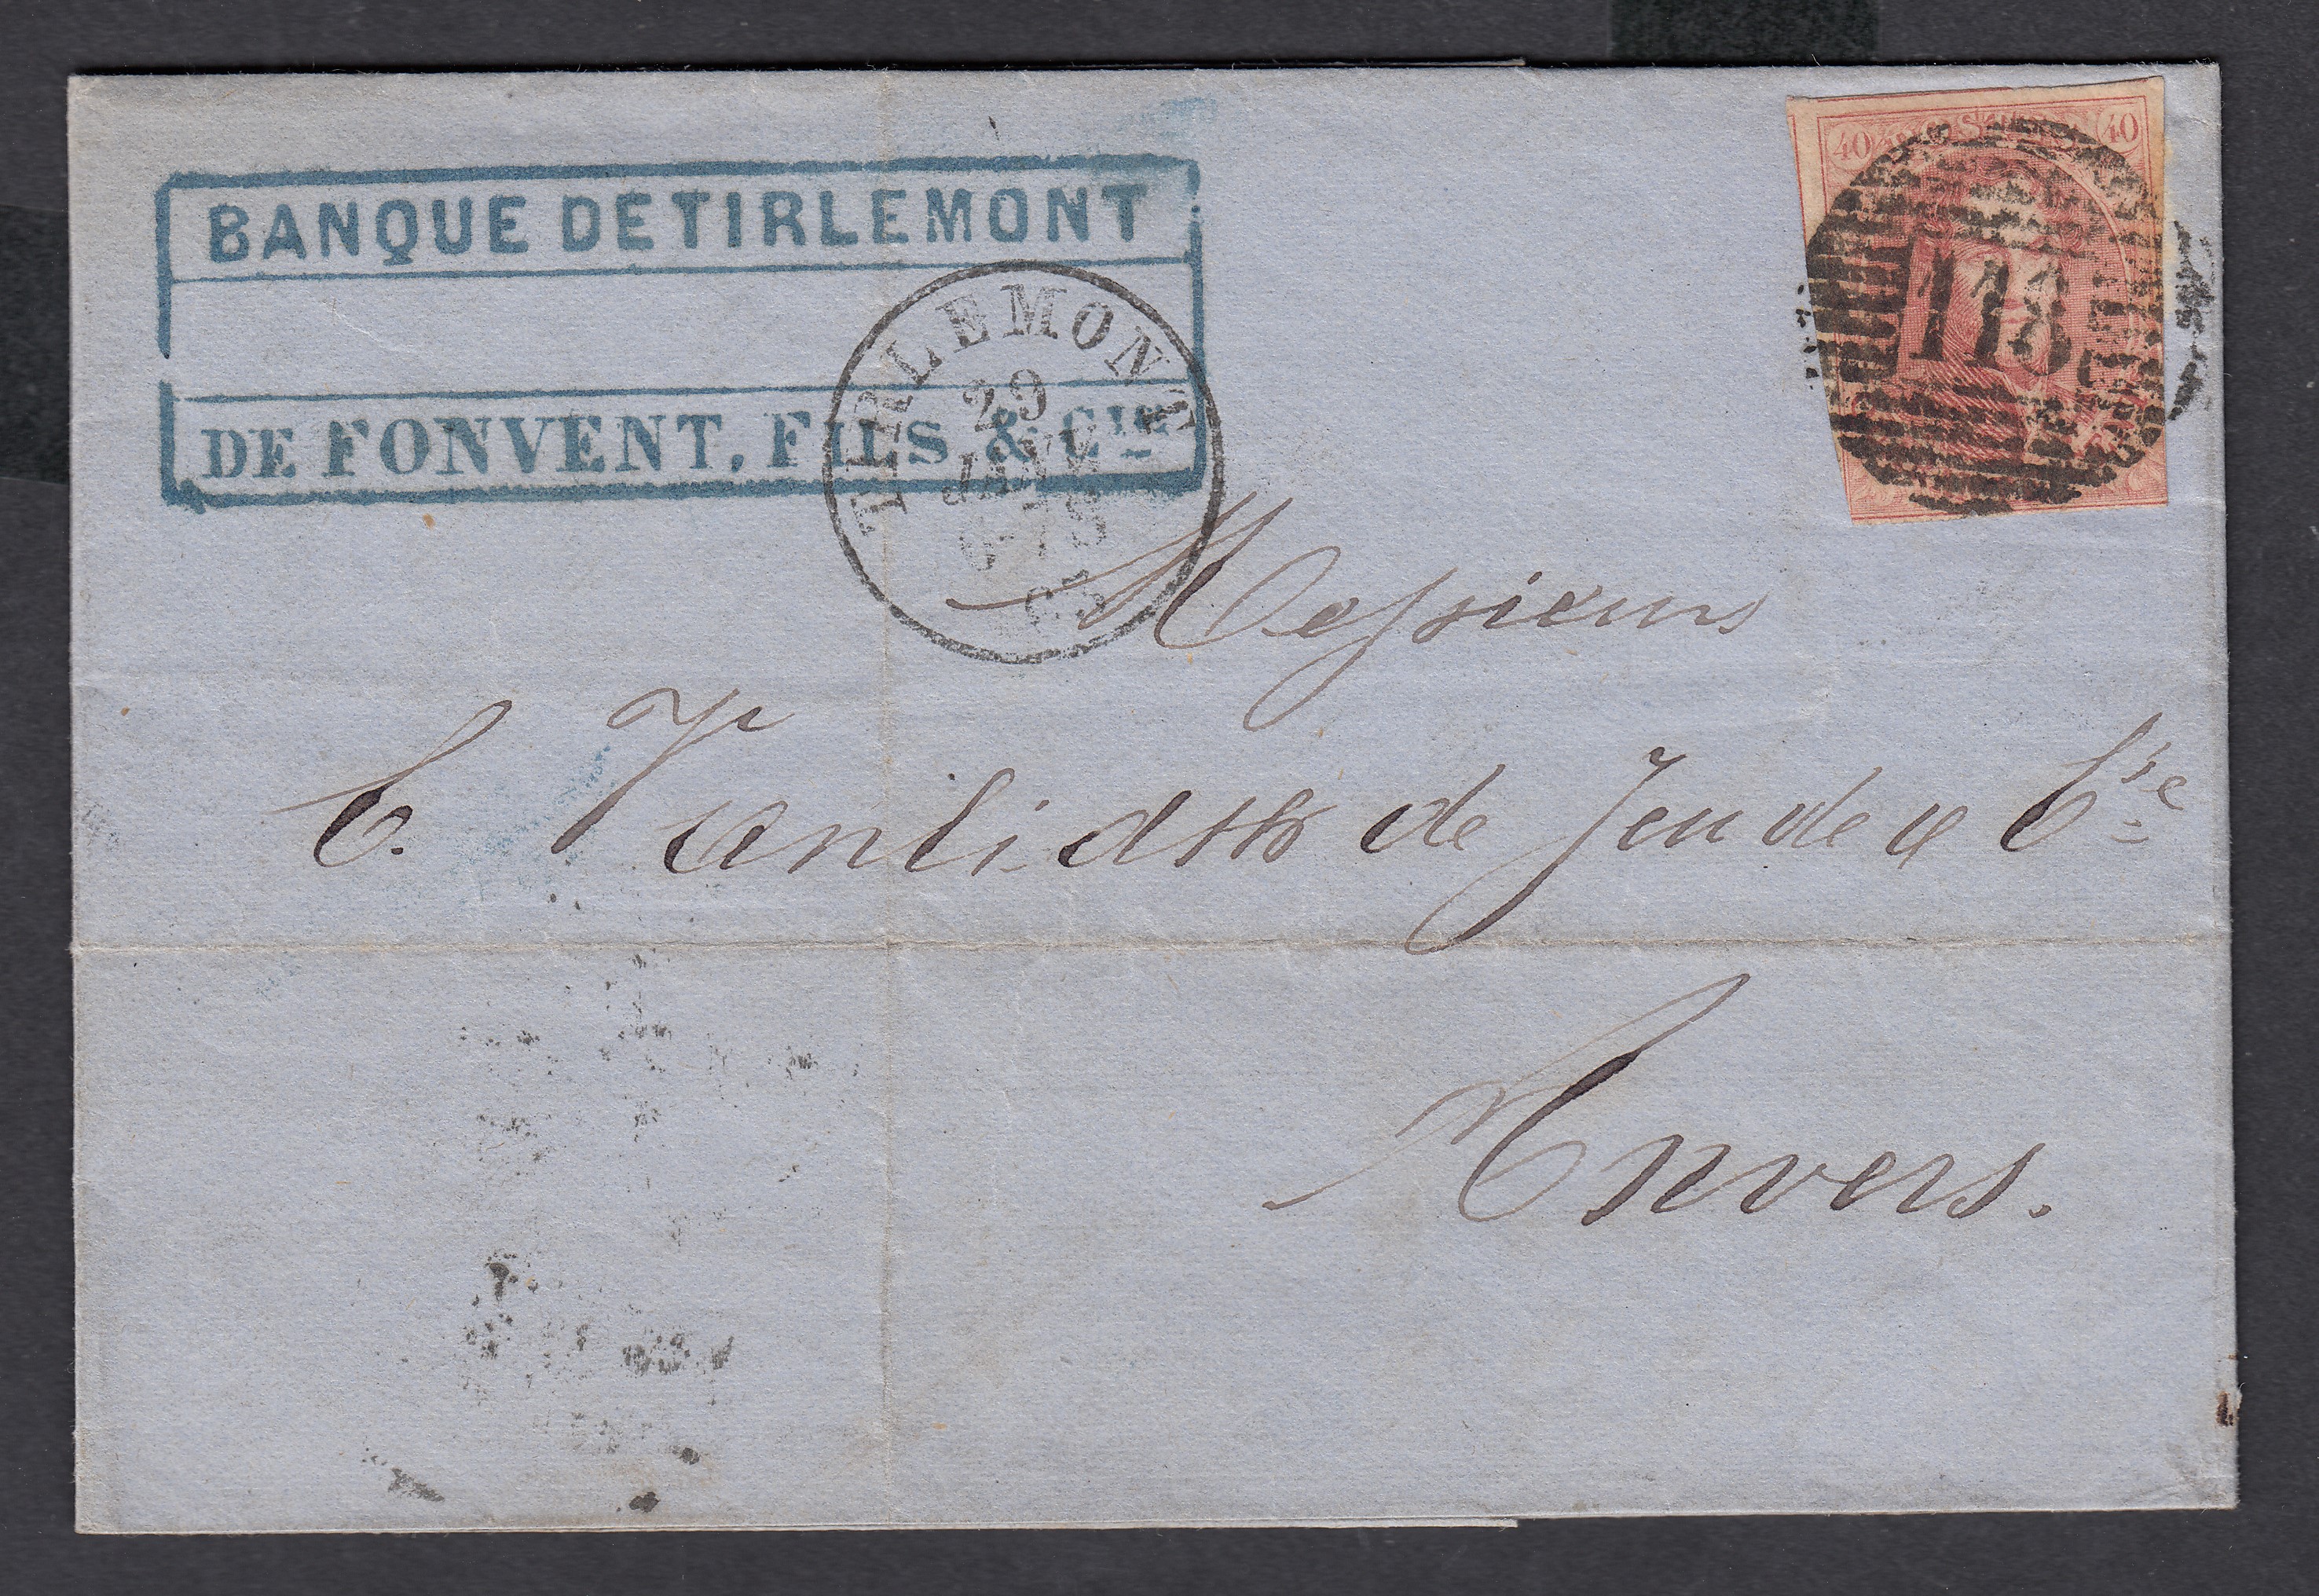 BANQUE DE TIRLEMONT
DE FONVENT, FILS & Cie
TIRLEMONT
29
JANV
6-7S
63
40 40
118
Messieurs
C. Vanlidth de Jeude & Cie
Anvers.